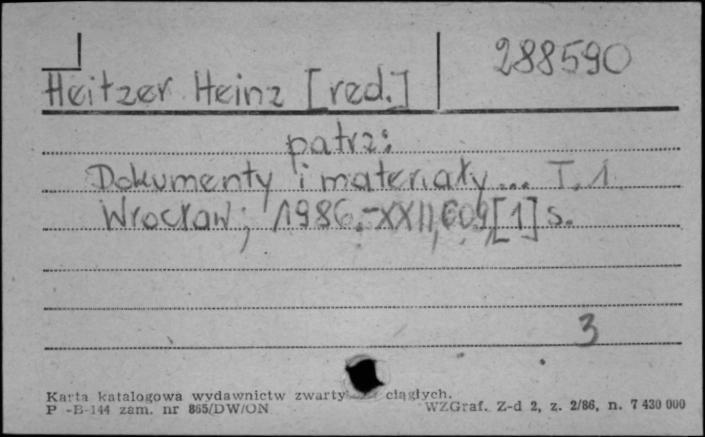 288590
Heitzer Heinz [red.]
patrz:
Dokumenty i materiały... T. 1.
Wrocław, 1986.-XXII, 609 [1] s.
3
Karta katalogowa wydawnictw zwarty ciągłych.
P -B-144 zam. nr 865/DW/ON WZGraf. Z-d 2, z. 2/86, n. 7 430 000